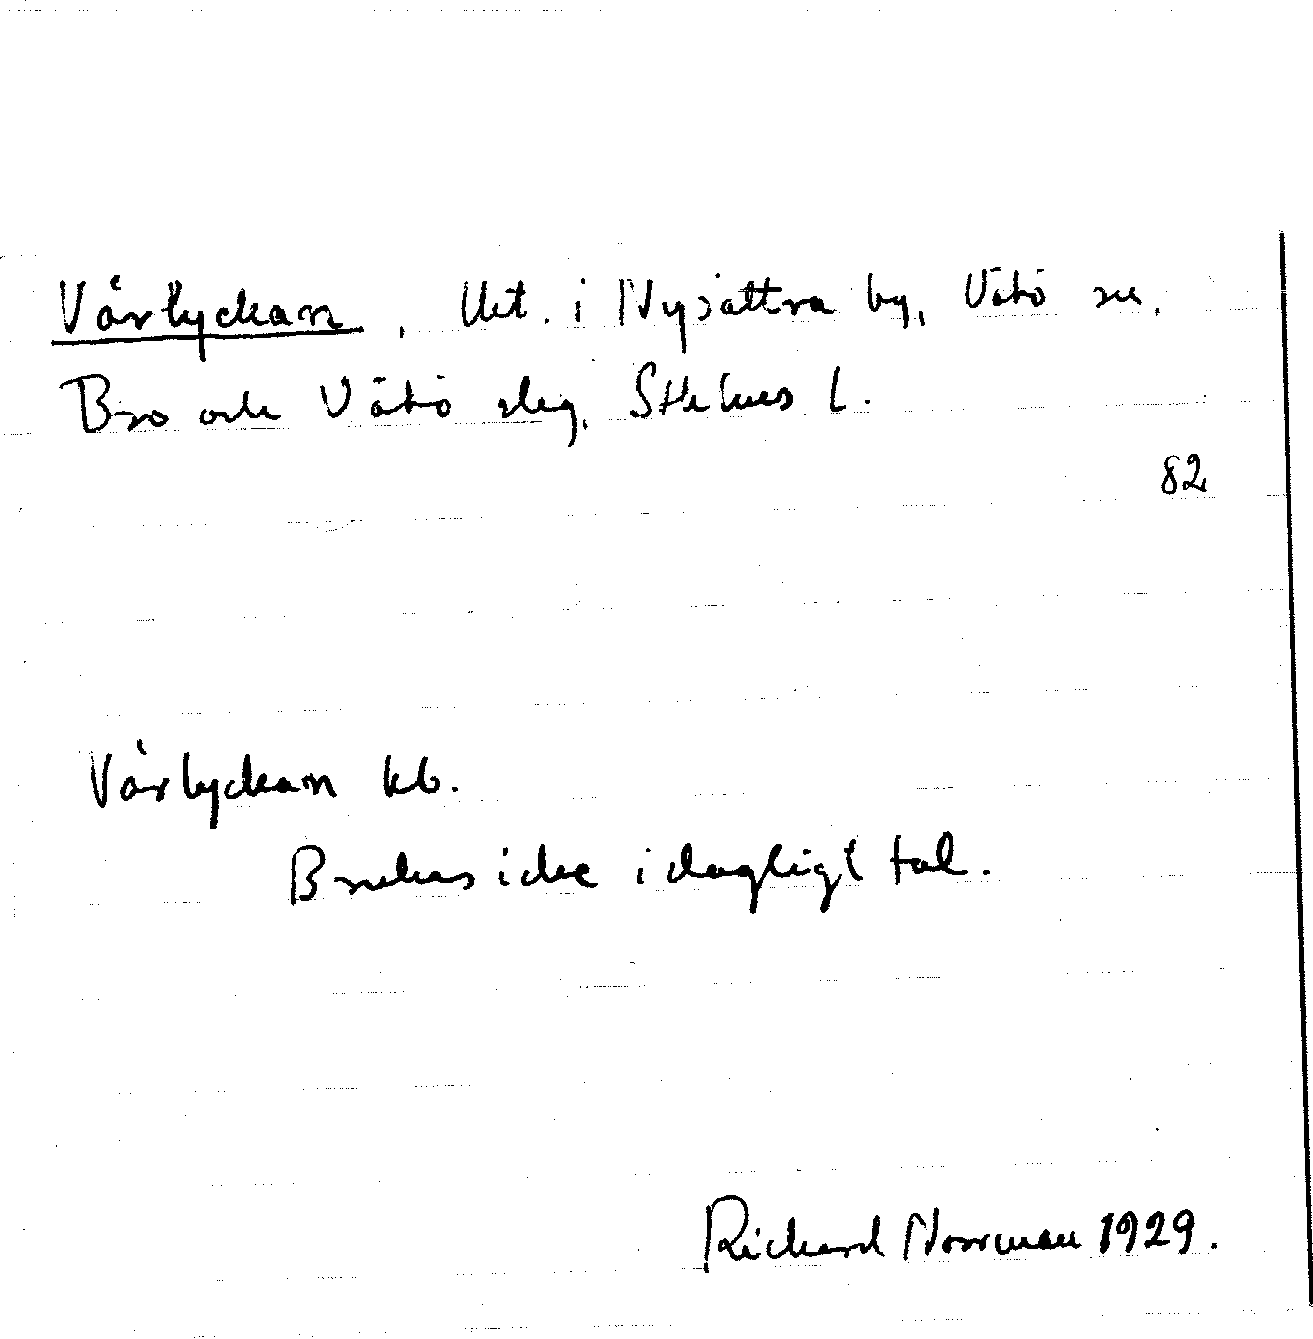 Vårlyckan, Utt. i Nysättra by, Vätö sn.
Bro och Vätö slg, Sthlms l.
82
Vårlyckan kb.
Brukas icke i dagligt tal.
Richard Norrman 1929.